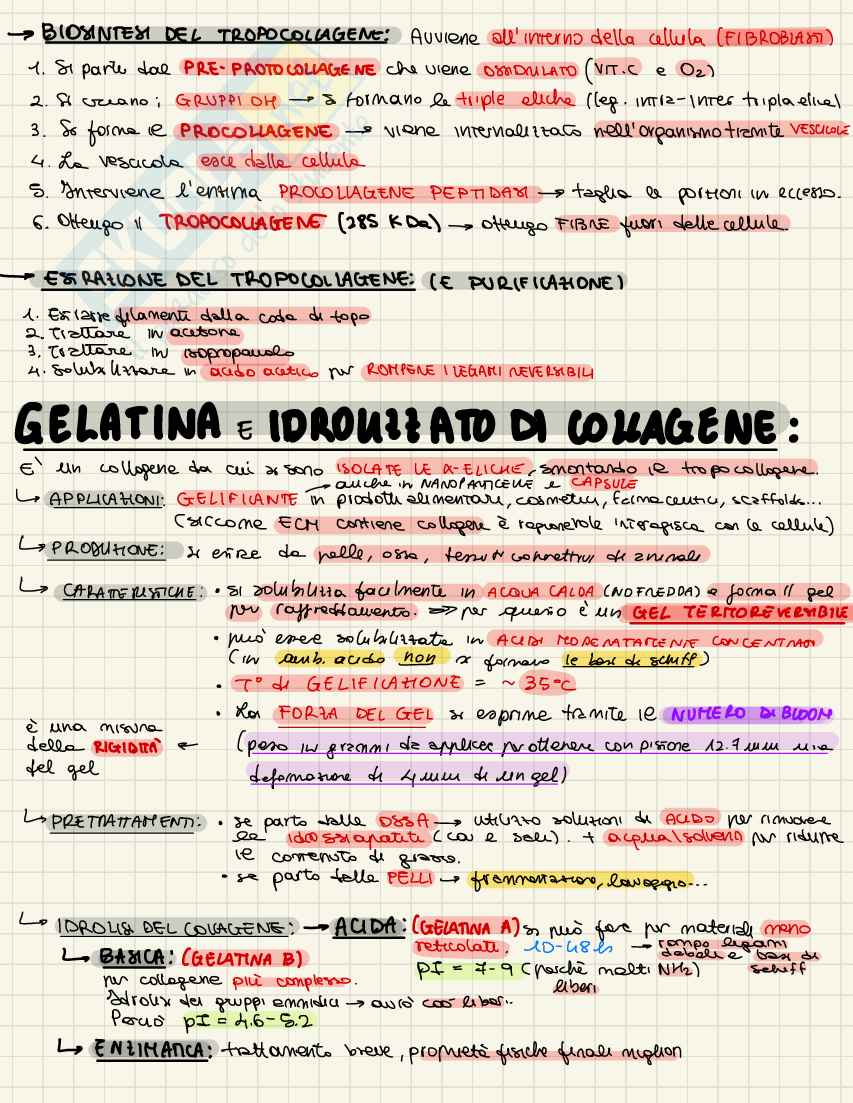 → BIOSINTESI DEL TROPOCOLLAGENE: Avviene all'interno della cellula (FIBROBLASTI)
1. Si parte dal PRE-PROTOCOLLAGENE che viene OSSIDULATO (VIT.C e O2)
2. Si creano i GRUPPI OH → si formano le triple eliche (leg. intra-inter tripla elica)
3. Si forma il PROCOLLAGENE → viene internalizzato nell'organismo tramite VESCICOLE
4. La vescicola esce dalla cellula
5. Interviene l'enzima PROCOLLAGENE PEPTIDASI → taglia le porzioni in eccesso.
6. Ottengo il TROPOCOLLAGENE (285 KDa) → ottengo FIBRE fuori delle cellule.
→ ESTRAZIONE DEL TROPOCOLLAGENE: (E PURIFICAZIONE)
1. Estrarre filamenti dalla coda di topo
2. Trattare in acetone
3. Trattare in isopropanolo
4. Solubilizzare in acido acetico per ROMPERE I LEGAMI REVERSIBILI
GELATINA E IDROLIZZATO DI COLLAGENE:
E' un collagene da cui si sono ISOLATE LE α-ELICHE, smontando il tropocollagene.
→ anche in NANOPARTICELLE e CAPSULE
↳ APPLICAZIONI: GELIFICANTE in prodotti alimentari, cosmetici, farmaceutici, scaffolds...
(siccome ECM contiene collagene è ragionevole interagisca con le cellule)
↳ PRODUZIONE: si estrae da pelle, ossa, tessuti connettivi di animali
↳ CARATTERISTICHE: • si solubilizza facilmente in ACQUA CALDA (NO FREDDA) e forma il gel
per raffreddamento. ⇒ per questo è un GEL TERMOREVERSIBILE
• può essere solubilizzata in ACIDI MODERATAMENTE CONCENTRATI
(in amb. acido non si formano le basi di schiff)
• T° di GELIFICAZIONE = ~ 35°C
• La FORZA DEL GEL si esprime tramite il NUMERO DI BLOOM
è una misura della RIGIDITÀ del gel ←
(peso in grammi da applicare per ottenere con pistone 12.7 mm una
deformazione di 4 mm di un gel)
↳ PRETRATTAMENTI: • se parto dalle OSSA → utilizzo soluzioni di ACIDO per rimuovere
le idrossiapatiti (Ca e sali). + acqua/solventi per ridurre
il contenuto di grasso.
• se parto dalle PELLI → frammentazione, lavaggio...
↳ IDROLISI DEL COLLAGENE: → ACIDA: (GELATINA A) si può fare per materiali meno
reticolati. 10-48 h → rompo legami deboli e basi di schiff
pI = 7-9 (perchè molti NH2 liberi)
↳ BASICA: (GELATINA B)
per collagene più complesso.
Idrolisi dei gruppi ammidici → avrò COO liberi..
Perciò pI = 4.6-5.2
↳ ENZIMATICA: trattamento breve, proprietà fisiche finali migliori